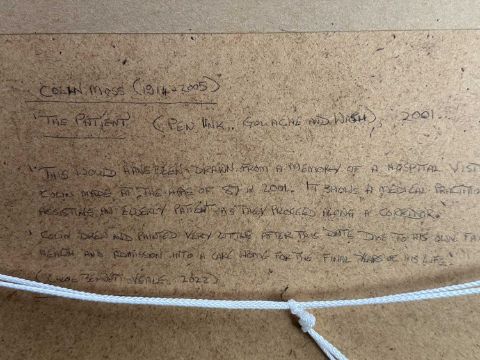 COLIN MOSS (1914-2005)
'THE PATIENT' (PEN INK, GOUACHE AND WASH), 2001.
'THIS WOULD HAVE BEEN DRAWN FROM A MEMORY OF A HOSPITAL VISIT
COLIN MADE AT THE AGE OF 87 IN 2001. IT SHOWS A MEDICAL
ASSISTING AN ELDERLY PATIENT AS THEY PROCEED ALONG A CORRIDOR.
COLIN DREW AND PAINTED VERY LITTLE AFTER THIS DATE DUE TO HIS OWN
HEALTH AND ADMISSION INTO A CARE HOME FOR THE FINAL YEARS OF HIS LIFE.'
2022)